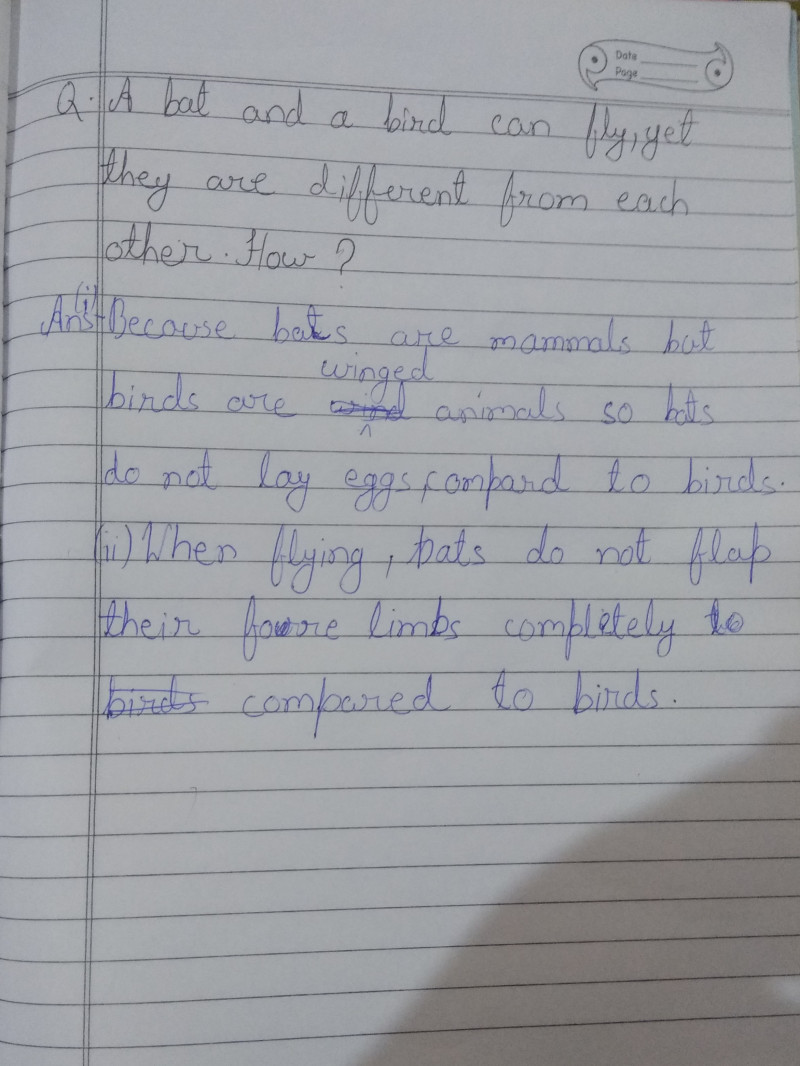 Date
Page
Q. A bat and a bird can fly, yet
they are different from each
other. How?
Ans- (i) Because bats are mammals but
winged
birds are animals so bats
do not lay eggs, compard to birds.
(ii) When flying, bats do not flap
their foure limbs completely to
birds compared to birds.